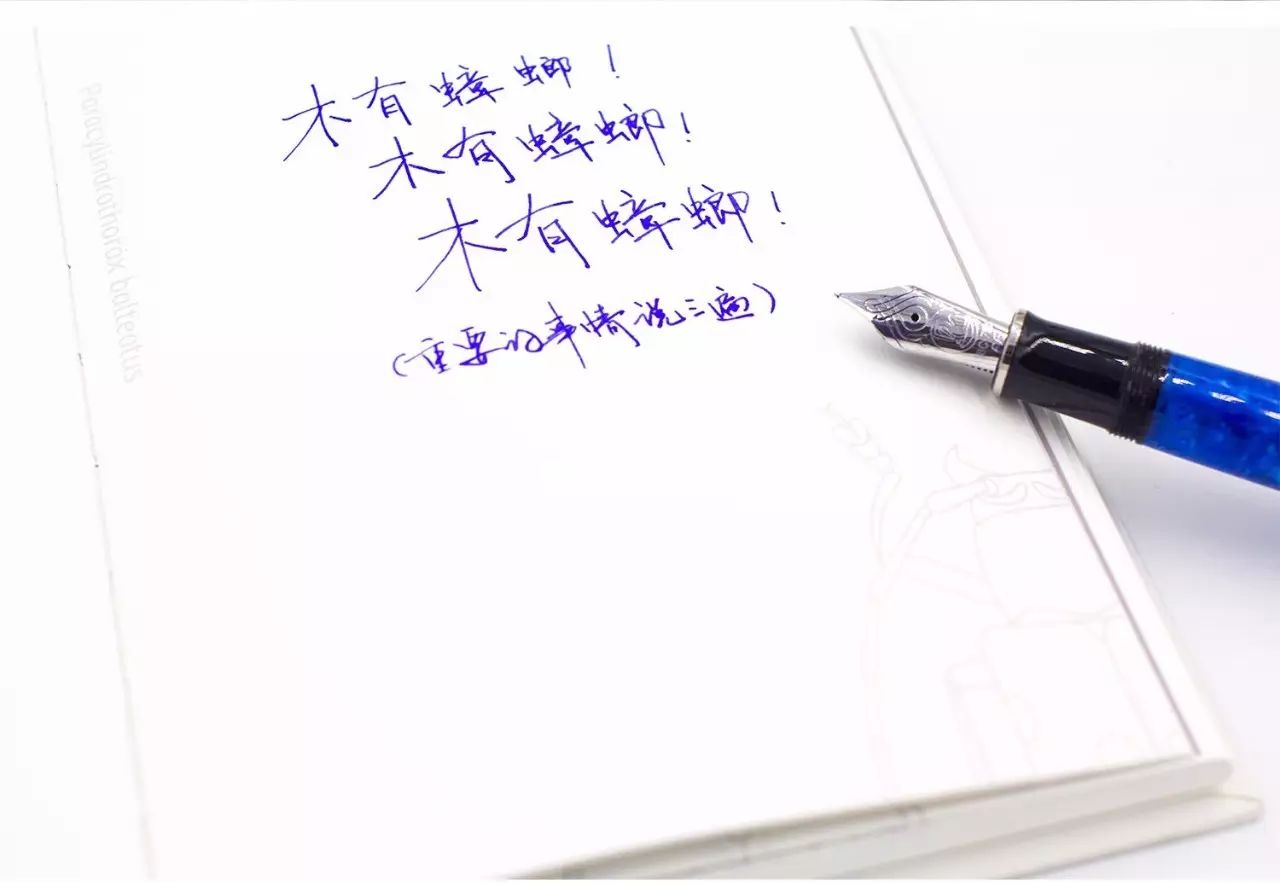 木有蟑螂！
木有蟑螂！
木有蟑螂！
（重要的事情说三遍）
Paracylindrothorax balteatus